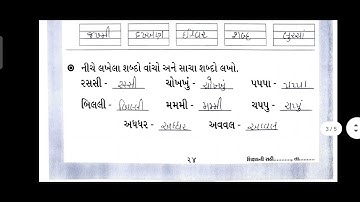 જખ્મી દખ્ખણ ઈશ્વર શબ્દ લુચ્ચા
નીચે લખેલા શબ્દો વાંચો અને સાચા શબ્દો લખો.
રસસી - રસ્સી ચોખખું - ચોખ્ખું પપપા - પપ્પા
બિલલી - બિલ્લી મમમી - મમ્મી ચપપુ - ચપ્પું
અધધર - અધ્ધર અવવલ - અવ્વલ
૨૪
3/5